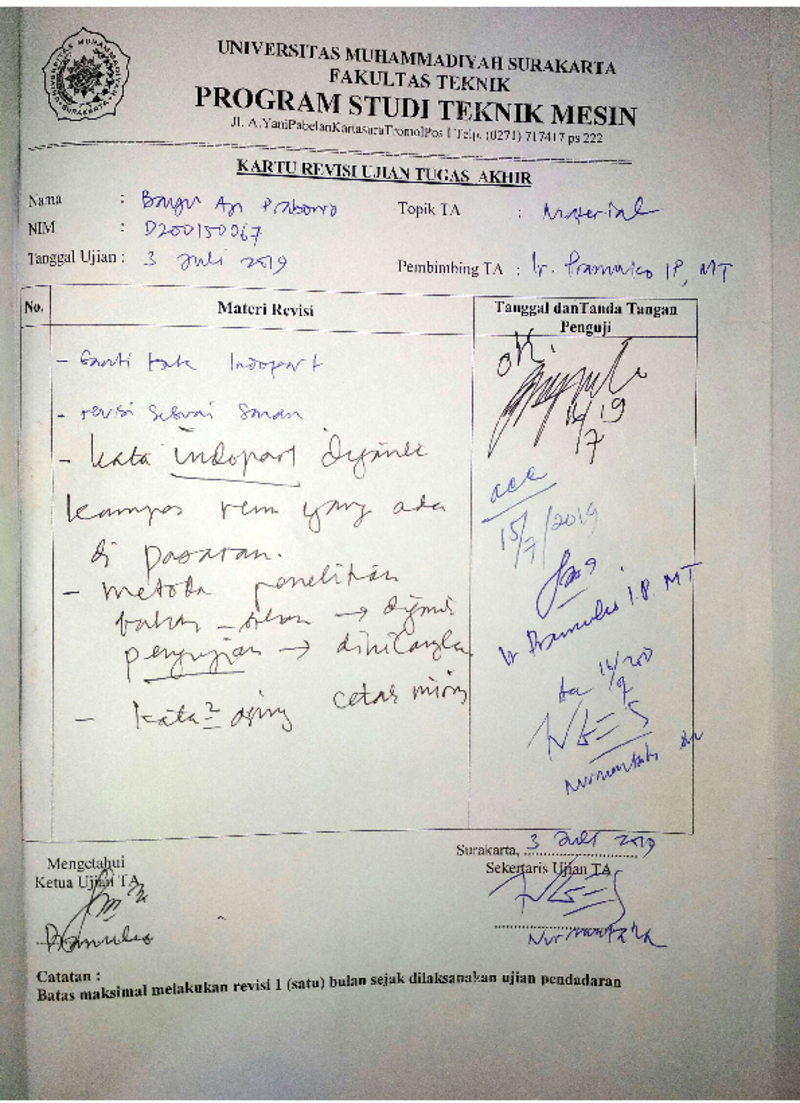 UNIVERSITAS MUHAMMADIYAH SURAKARTA
FAKULTAS TEKNIK
PROGRAM STUDI TEKNIK MESIN
Jl. A.YaniPabelanKartasuraTromolPos I Telp. (0271) 717417 ps 222
KARTU REVISI UJIAN TUGAS AKHIR
Nama : Bayu Aji Prabowo Topik TA : Material
NIM : D200150067
Tanggal Ujian : 3 Juli 2019 Pembimbing TA : Ir. Pramuko IP, MT
No. Materi Revisi Tanggal danTanda Tangan Penguji
- Ganti kata Indopart
OK
16/7 19
- revisi sesuai saran
- kata indopart diganti
kampas rem yang ada
di pasaran.
acc
15/7/2019
- metoda penelitian
bahan - →
pengujian → dihilangkan
Ir Pramuko I.P. MT
- kata2 asing cetak miring
Surakarta, 3 Juli 2019
Mengetahui
Ketua Ujian TA
Sekertaris Ujian TA
Pramuko
Nurmuntaha
Catatan :
Batas maksimal melakukan revisi 1 (satu) bulan sejak dilaksanakan ujian pendadaran